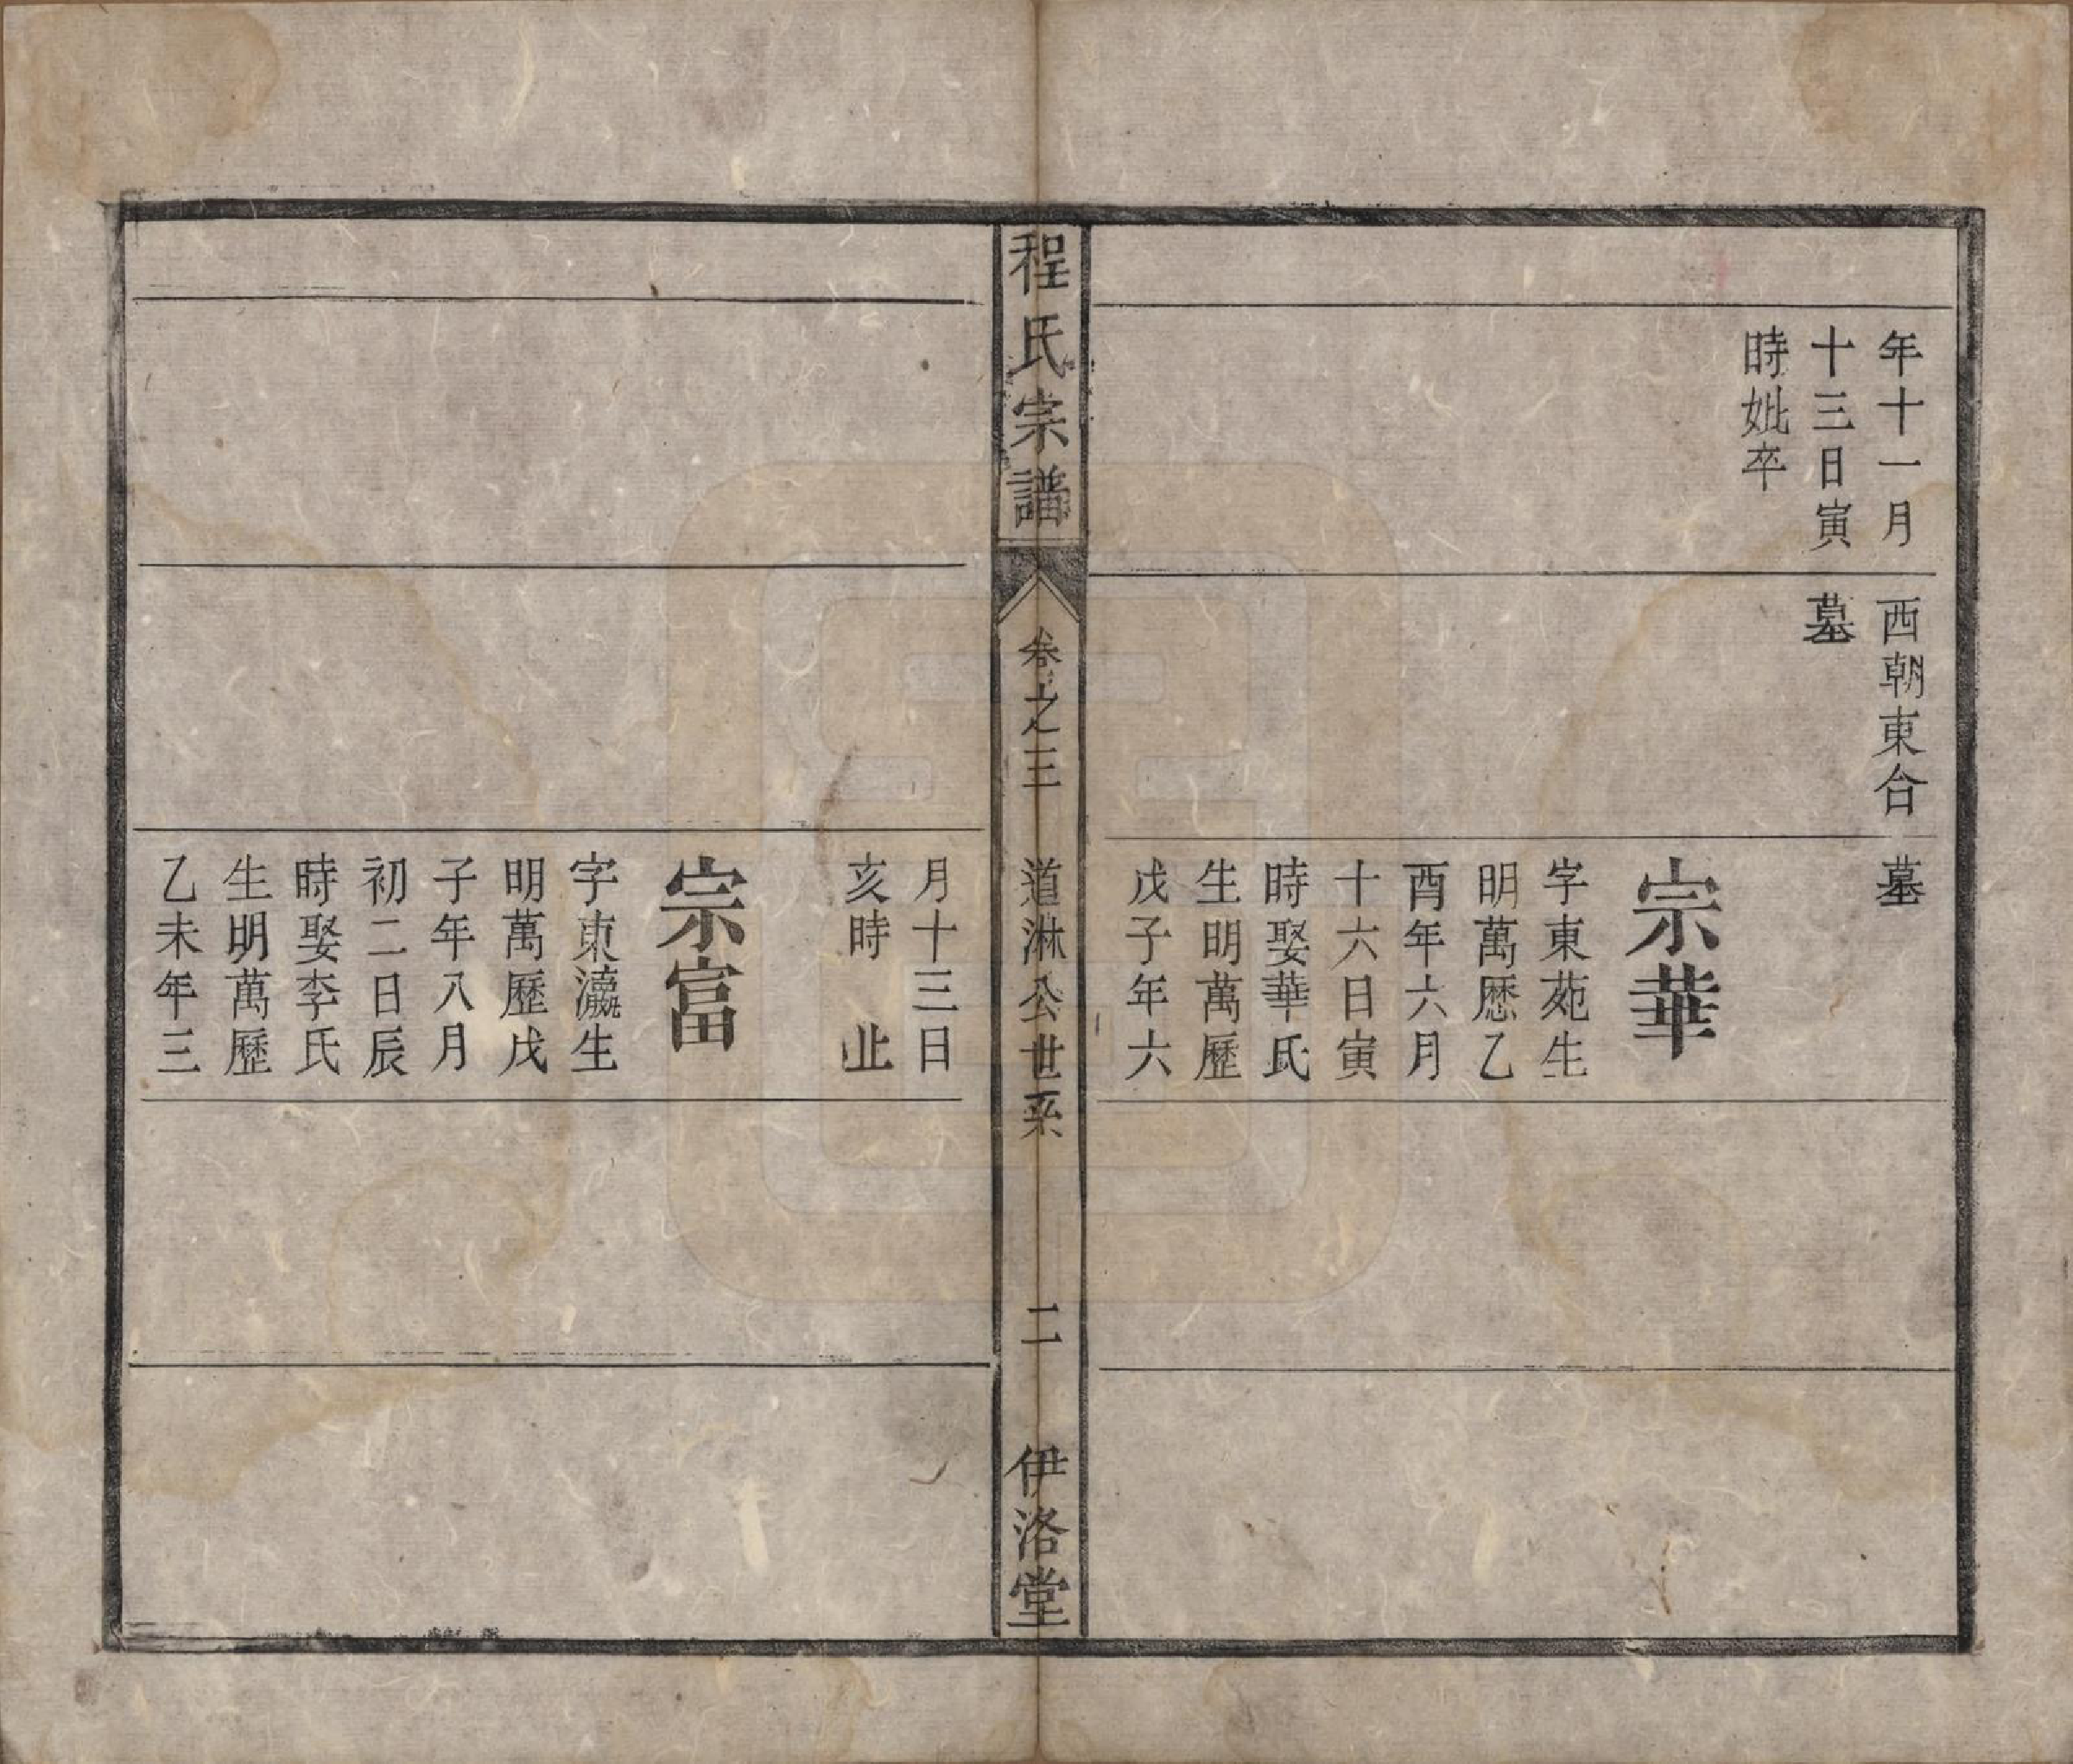 年十一月
十三日寅
時妣卒
西朝東合
墓
墓
宗華
字東苑生
明萬歷乙
酉年六月
十六日寅
時娶華氏
生明萬歷
戊子年六
程氏宗譜
卷之三
道淋公世系
二
伊洛堂
月十三日
亥時 止
宗富
字東瀛生
明萬歷戊
子年八月
初二日辰
時娶李氏
生明萬歷
乙未年三